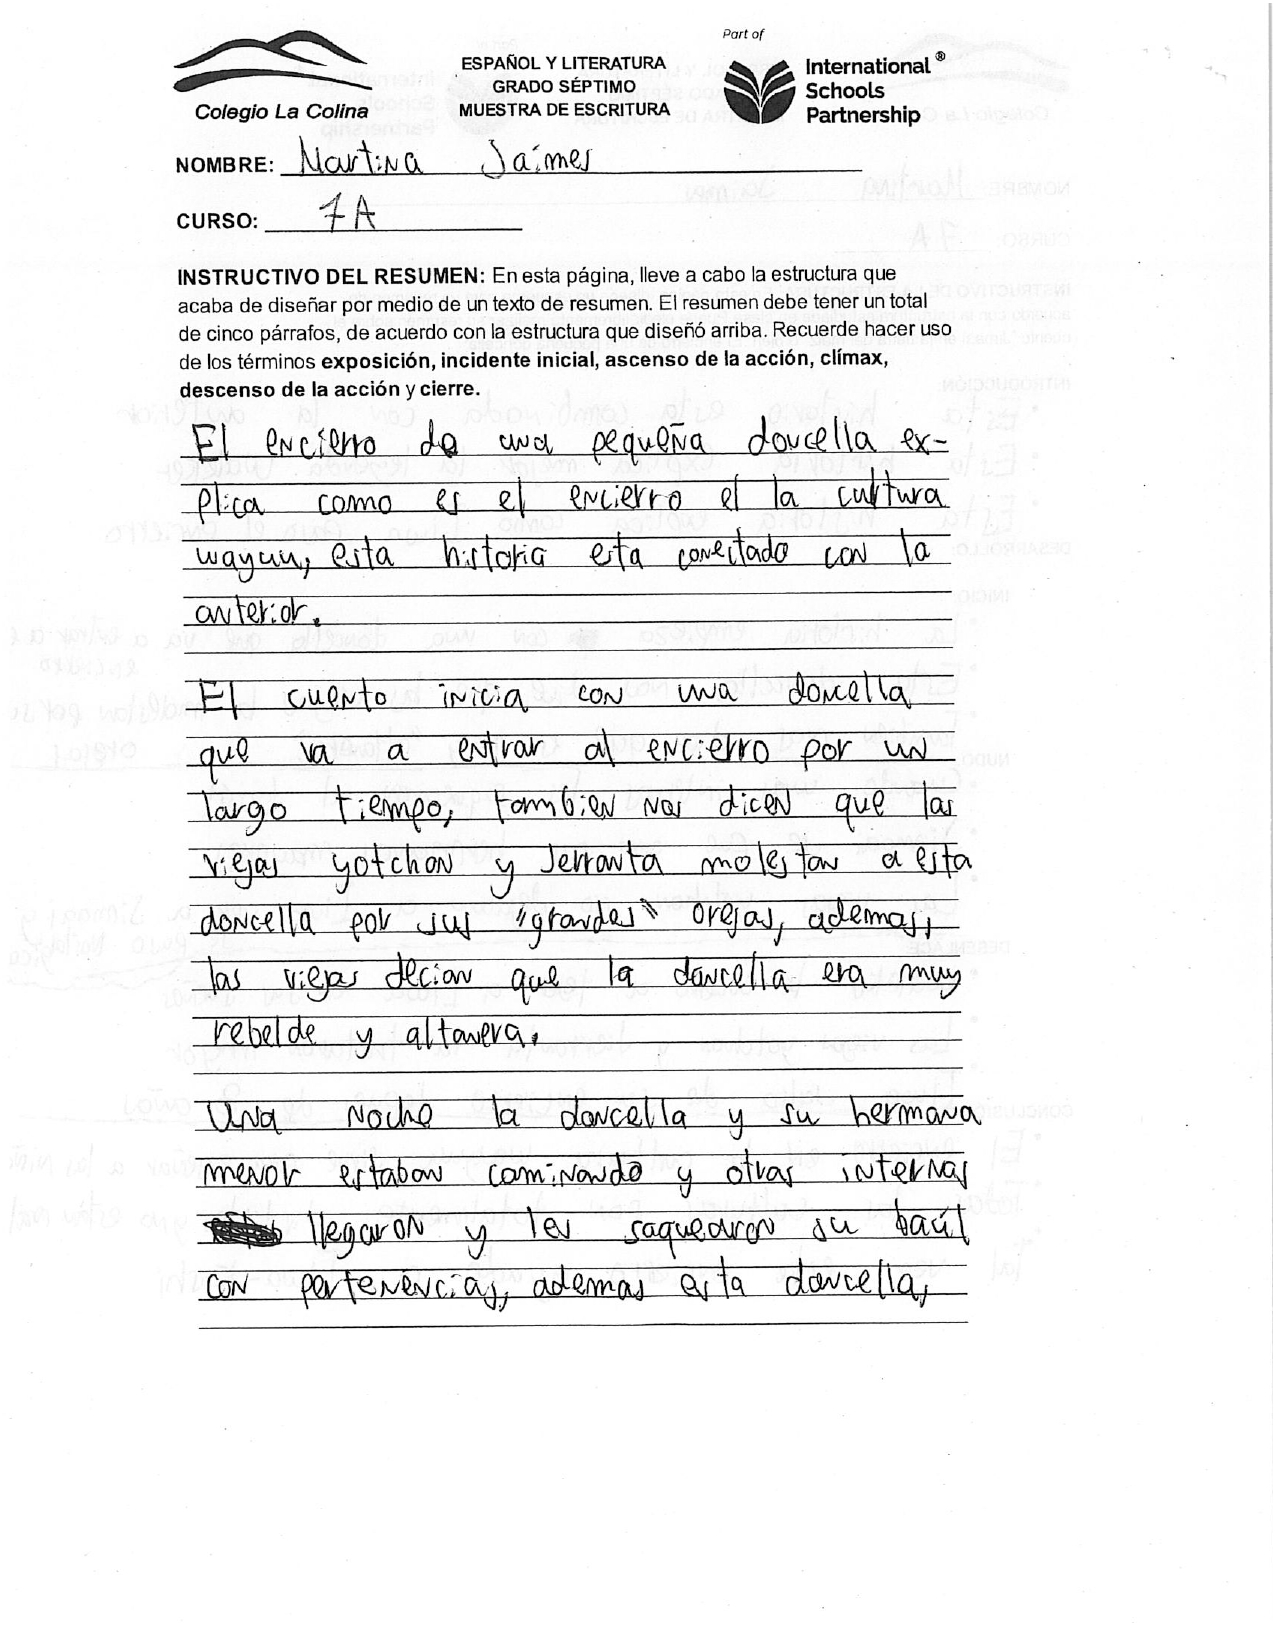 Part of
ESPAÑOL Y LITERATURA
GRADO SÉPTIMO
MUESTRA DE ESCRITURA
Colegio La Colina
International ®
Schools
Partnership
NOMBRE: Martina Jaimes
CURSO: 7A
INSTRUCTIVO DEL RESUMEN: En esta página, lleve a cabo la estructura que
acaba de diseñar por medio de un texto de resumen. El resumen debe tener un total
de cinco párrafos, de acuerdo con la estructura que diseñó arriba. Recuerde hacer uso
de los términos exposición, incidente inicial, ascenso de la acción, clímax,
descenso de la acción y cierre.
El encierro de una pequeña doncella ex-
plica como es el encierro el la cultura
wayuu, esta historia esta conectado con la
anterior.
El cuento inicia con una doncella
que va a entrar al encierro por un
largo tiempo, tambien nos dicen que las
viejas yotchon y Jerranta molestan a esta
doncella por sus "grandes" orejas, ademas,
las viejas decian que la doncella era muy
rebelde y altanera.
Una noche la doncella y su hermana
menor estaban caminando y otras internas
llegaron y les saquearon su baúl
con pertenencias, ademas esta doncella,